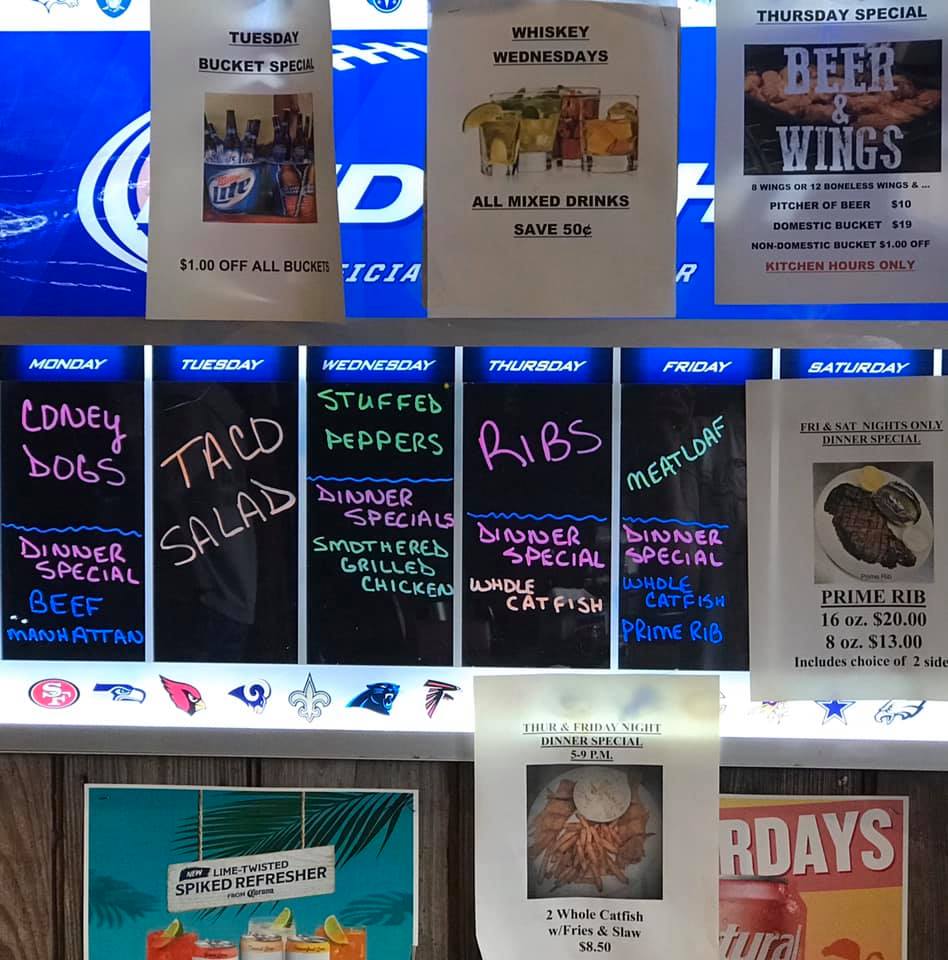 TUESDAY
BUCKET SPECIAL
Lite
$1.00 OFF ALL BUCKETS
WHISKEY
WEDNESDAYS
ALL MIXED DRINKS
SAVE 50¢
THURSDAY SPECIAL
BEER
&
WINGS
8 WINGS OR 12 BONELESS WINGS & ...
PITCHER OF BEER $10
DOMESTIC BUCKET $19
NON-DOMESTIC BUCKET $1.00 OFF
KITCHEN HOURS ONLY
MONDAY
CONEY
DOGS
DINNER
SPECIAL
BEEF
MANHATTAN
TUESDAY
TACO
SALAD
WEDNESDAY
STUFFED
PEPPERS
DINNER
SPECIALS
SMOTHERED
GRILLED
CHICKEN
THURSDAY
RIBS
DINNER
SPECIAL
WHOLE
CATFISH
FRIDAY
MEATLOAF
DINNER
SPECIAL
WHOLE
CATFISH
PRIME RIB
SATURDAY
FRI & SAT NIGHTS ONLY
DINNER SPECIAL
Prime Rib
PRIME RIB
16 oz. $20.00
8 oz. $13.00
Includes choice of 2 side
THUR & FRIDAY NIGHT
DINNER SPECIAL
5-9 P.M.
2 Whole Catfish
w/Fries & Slaw
$8.50
NEW LIME-TWISTED
SPIKED REFRESHER
FROM Corona
RDAYS
tural